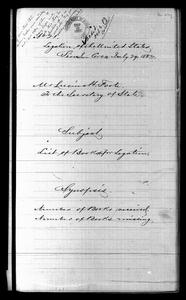 Legation of the United States,
Seoul Corea July 29, 188
Mr Lucius H. Foote
To the Secretary of State.
Subject
List of Books for Legation.
Synopsis
Number of Books received
Number of Books missing